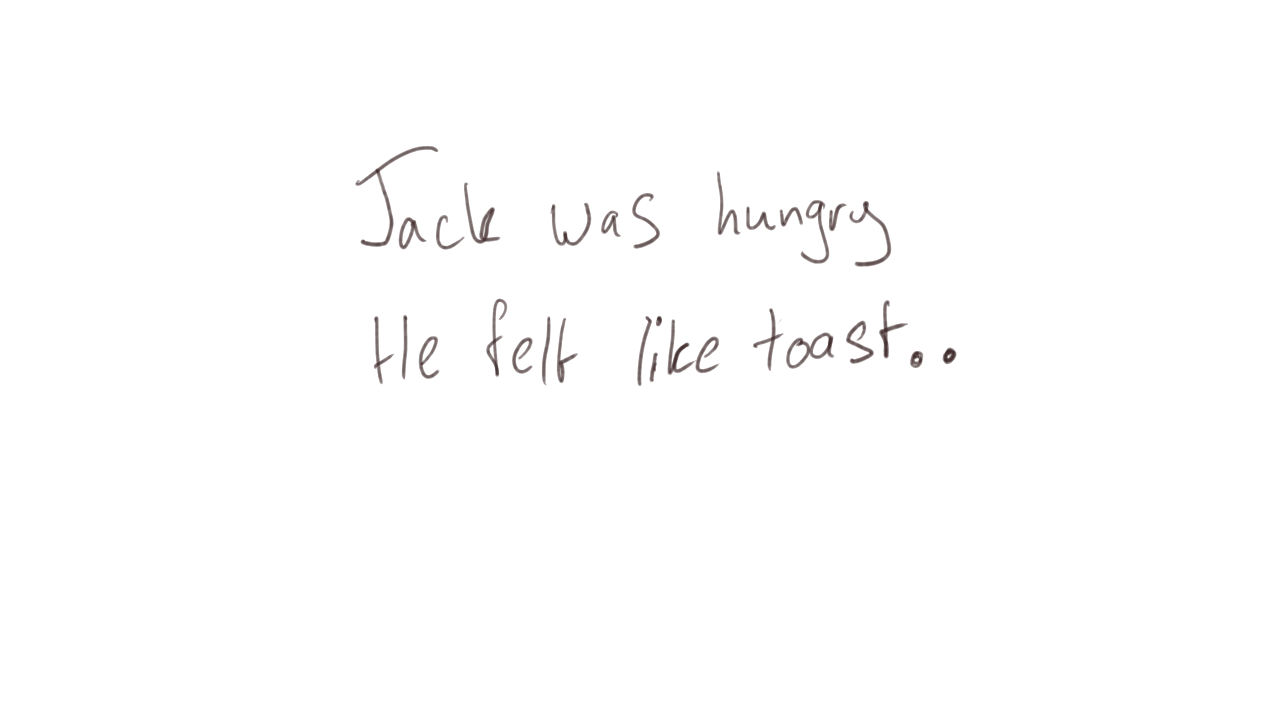 Jack was hungry
He felt like toast..